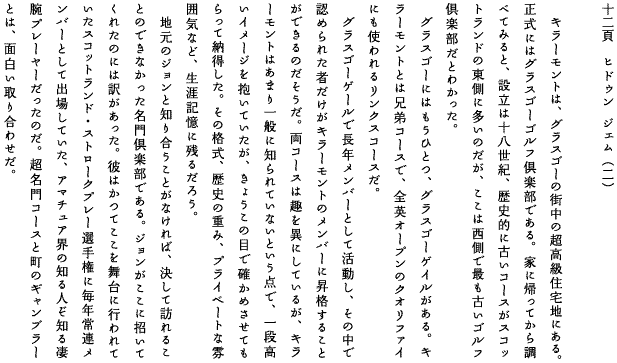 十二頁　ヒドゥン　ジェム（二）
　キラーモントは、グラスゴーの街中の超高級住宅地にある。
正式にはグラスゴーゴルフ倶楽部である。家に帰ってから調
べてみると、設立は十八世紀、歴史的に古いコースがスコッ
トランドの東側に多いのだが、ここは西側で最も古いゴルフ
倶楽部だとわかった。
　グラスゴーにはもうひとつ、グラスゴーゲイルがある。キ
ラーモントとは兄弟コースで、全英オープンのクオリファイ
にも使われるリンクスコースだ。
　グラスゴーゲールで長年メンバーとして活動し、その中で
認められた者だけがキラーモントのメンバーに昇格すること
ができるのだそうだ。両コースは趣を異にしているが、キラ
ーモントはあまり一般に知られていないという点で、一段高
いイメージを抱いていたが、きょうこの目で確かめさせても
らって納得した。その格式、歴史の重み、プライベートな雰
囲気など、生涯記憶に残るだろう。
　地元のジョンと知り合うことがなければ、決して訪れるこ
とのできなかった名門倶楽部である。ジョンがここに招いて
くれたのには訳があった。彼はかつてここを舞台に行われて
いたスコットランド・ストロークプレー選手権に毎年常連メ
ンバーとして出場していた、アマチュア界の知る人ぞ知る凄
腕プレーヤーだったのだ。超名門コースと町のギャンブラー
とは、面白い取り合わせだ。